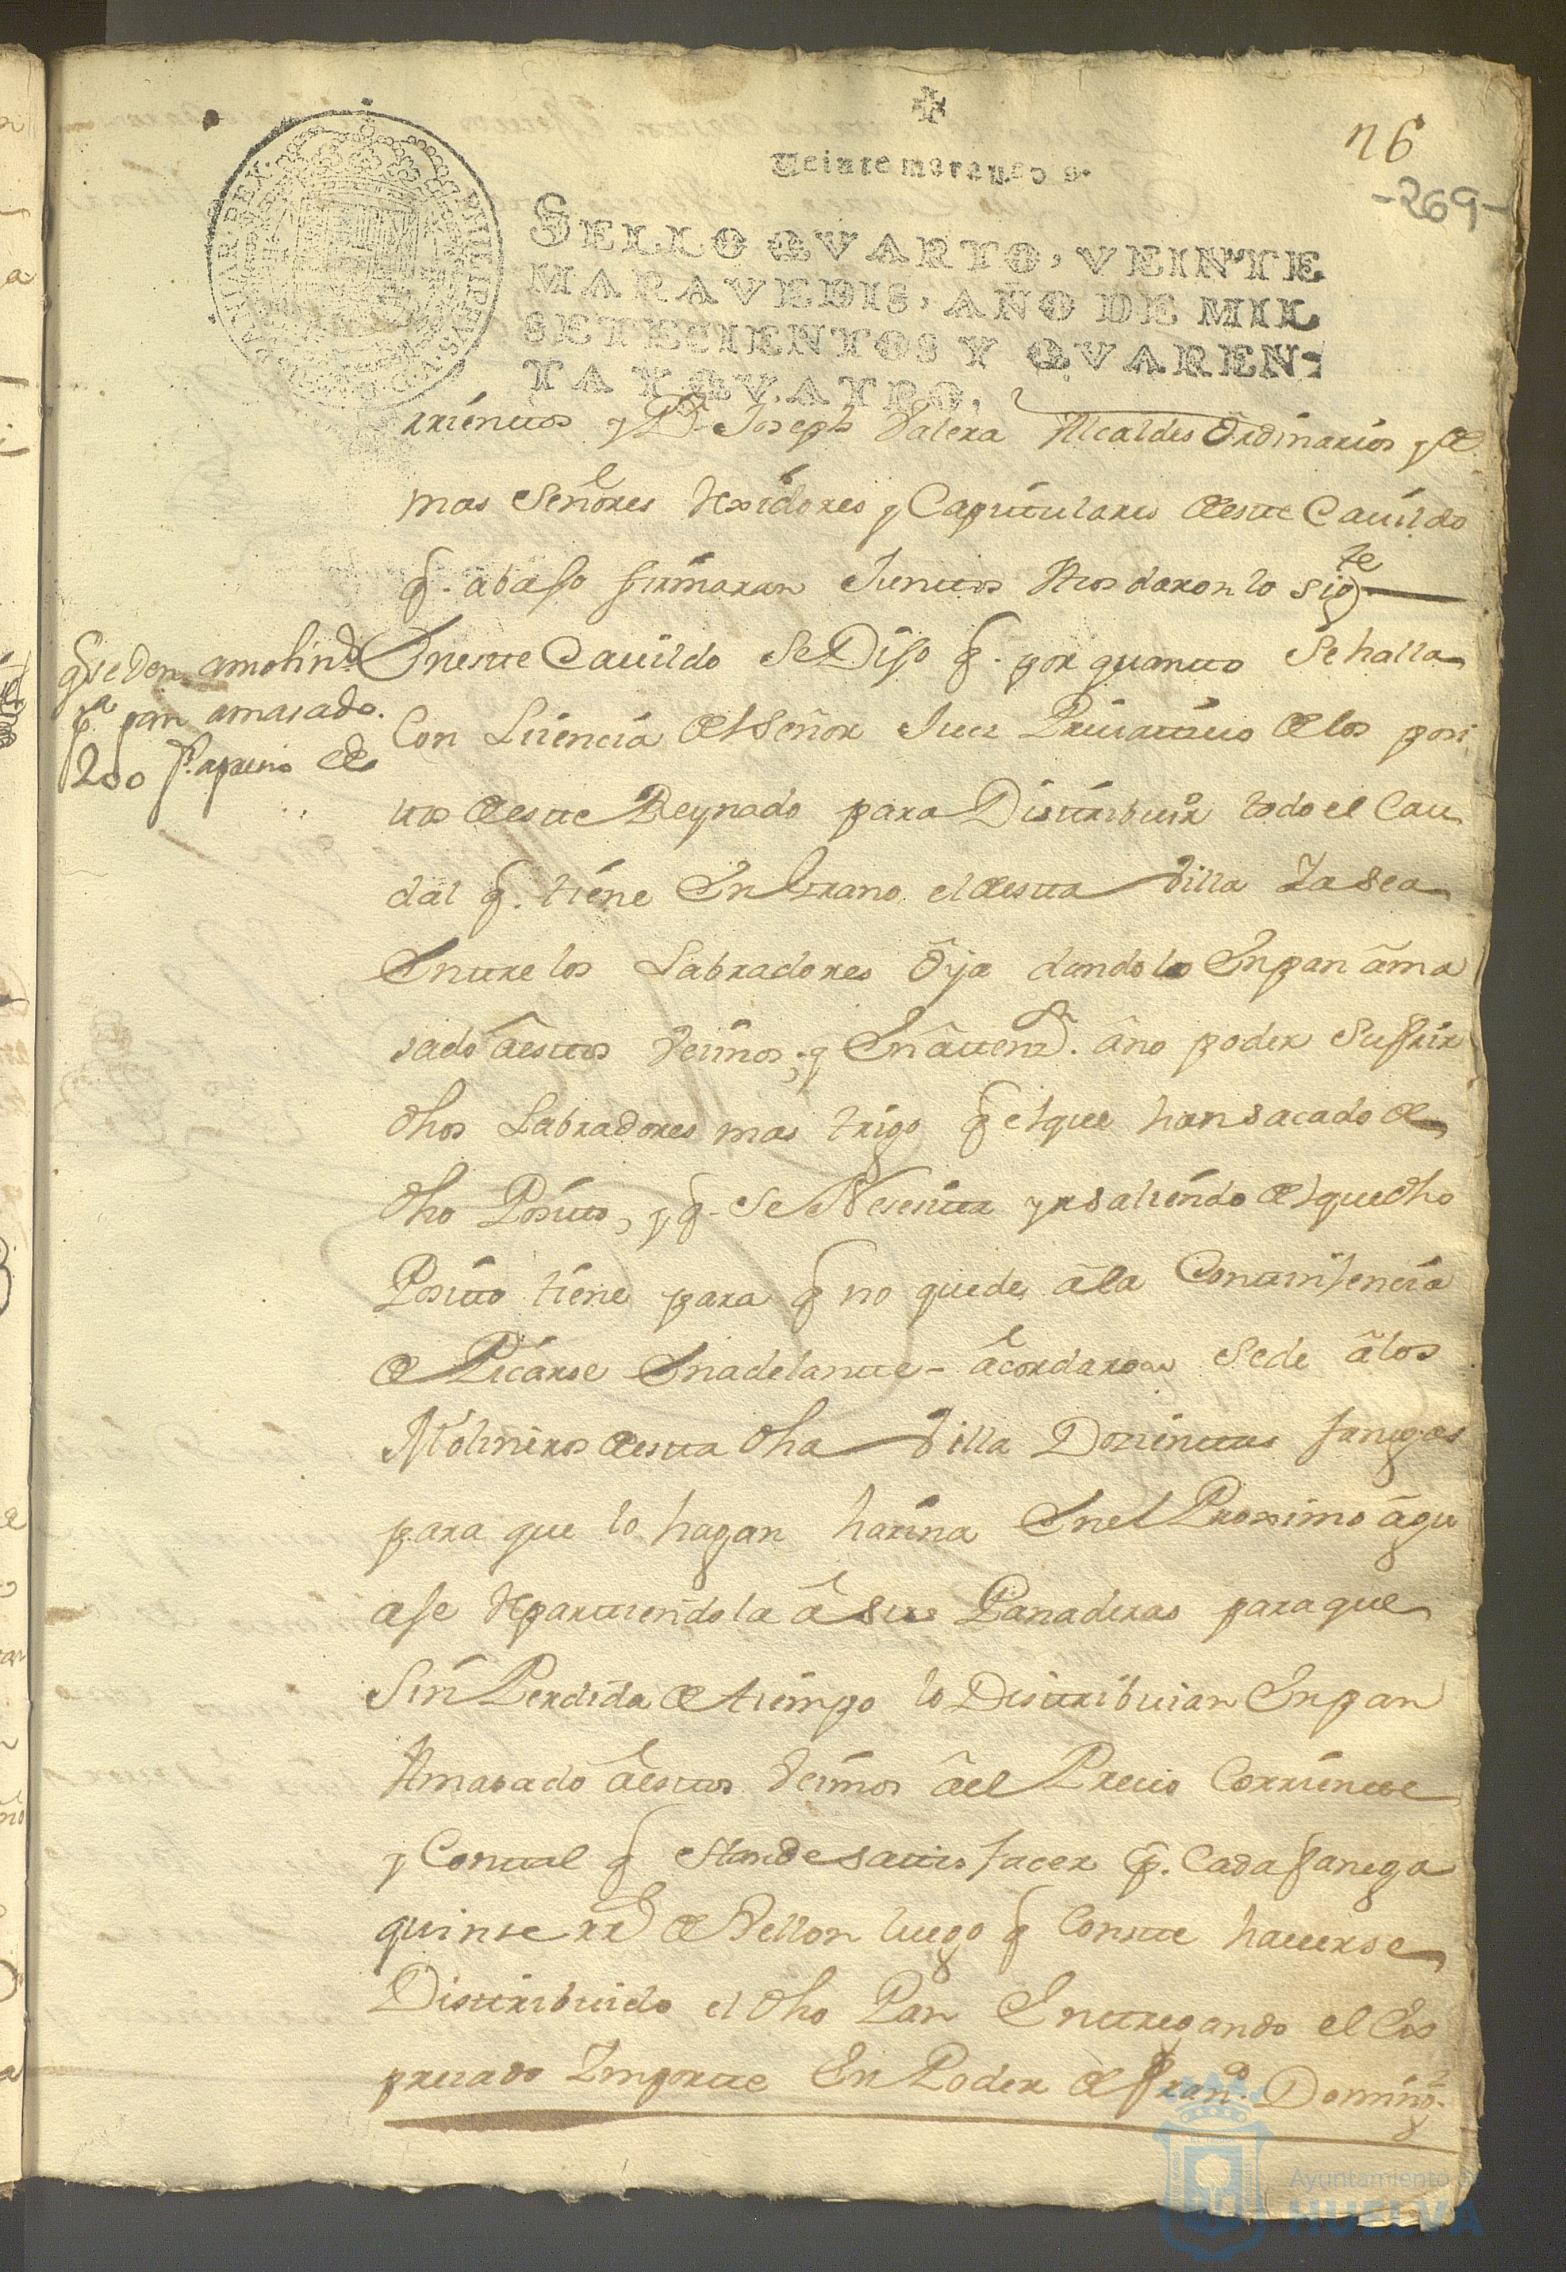 26
-269-
Veinte maravedis.
SELLO QVARTO, VEINTE
MARAVEDIS, AÑO DE MIL
SETECIENTOS Y QVAREN-
TA Y QVATRO.
PHILIP
rrientos y Dn Joseph Valera Alcaldes Ordinarios y de
mas Señores Rexidores y Capitulares deste Cavildo
q. abaxo firmaran Juntos Acordaron lo sigte
q se den a molindo
pa pan amasado.
200 fs a precio de
En este Cavildo Se Dijo q. por quanto Se halla
Con Lisencia del Señor Juez Privativo de los posi
tos deste Reynado para Distribuir todo el Cau
dal q. tiene En Grano el desta Villa Ya sea
Entre los Labradores O ya dandolo En pan ama
sado a estos Vecinos; y En atenn. a no poder Sufrir
dhos Labradores mas trigo q el que han sacado de
dho Posito, y q. Se Nesesita yr saliendo del que dho
Posito tiene para q no quede a la Contingencia
de Picarse En adelante - acordaron Se de a los
Molineros desta dha Villa Dozientas fanegas
para que lo hagan harina En el Proximo agu
aje Repartiendola a sus Panaderas para que
Sin Perdida de tiempo lo Distribuian En pan
Amasado a estos Vecinos a el Precio Corriente
y Con tal q Han de satisfacer p. Cada fanega
quinse rrs de Vellon luego q Conste haverse
Distribuido el dho Pan Entregando el Ex
presado Importe En Poder de Frano. Doming.
Ayuntamiento de
HUELVA